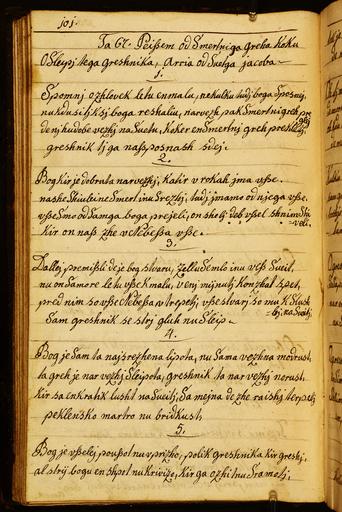 101.
Ta 67. Peißem od Smertniga Greha Koku
OSlepj tega Greshnika, Arcia od Svetga Jacoba
1.
Spomnj ozhlovek letu enmalu, nekulku tudj boga sposnaj,
nukdu si tj ksj boga reshaliu, narvezh pak Smertni greh
de nj hudobe vezhj na Sveitu, koker en Smertnj greh
greshnik tj ga naß posnash sdej.
2.
Bog kir je dobruta narvezhj, katir v rokah jma vße.
naske Shiulene Smert jnu Srezhj, tudj jmamo od njega vße.
vße Smo od Samga boga prejeli, on sholj deb vßel shnim
kir on naß zhe v Nebeßa vße.
3.
Dallej premißli de je bog stvaru, zellu Semlo jnu veß Sveit,
nu on Samore letu vße kmalu, v enj minuti konzhat spet,
pred nim so vße Nebeßa v trepetj vße stvarj so nu k Slush
Sam greshnik se storj gluh nu Sleip.
4.
Bog je Sam ta najsrezhena lipota, nu Sama vezhna modrust
ta greh je nar vezhj Sleipota, greshnik ta nar vezhj norust.
kir sa enkratik lusht na Sveitj, Sa mejna de zhe raishj terpetj
peklensko martro nu bridkust.
5.
Bog je vßelej poußot nu vprizho, polik greshnika kir greshj,
al storj bogu en shpot nu krivizo, kir ga ozhitnu Sramotj.